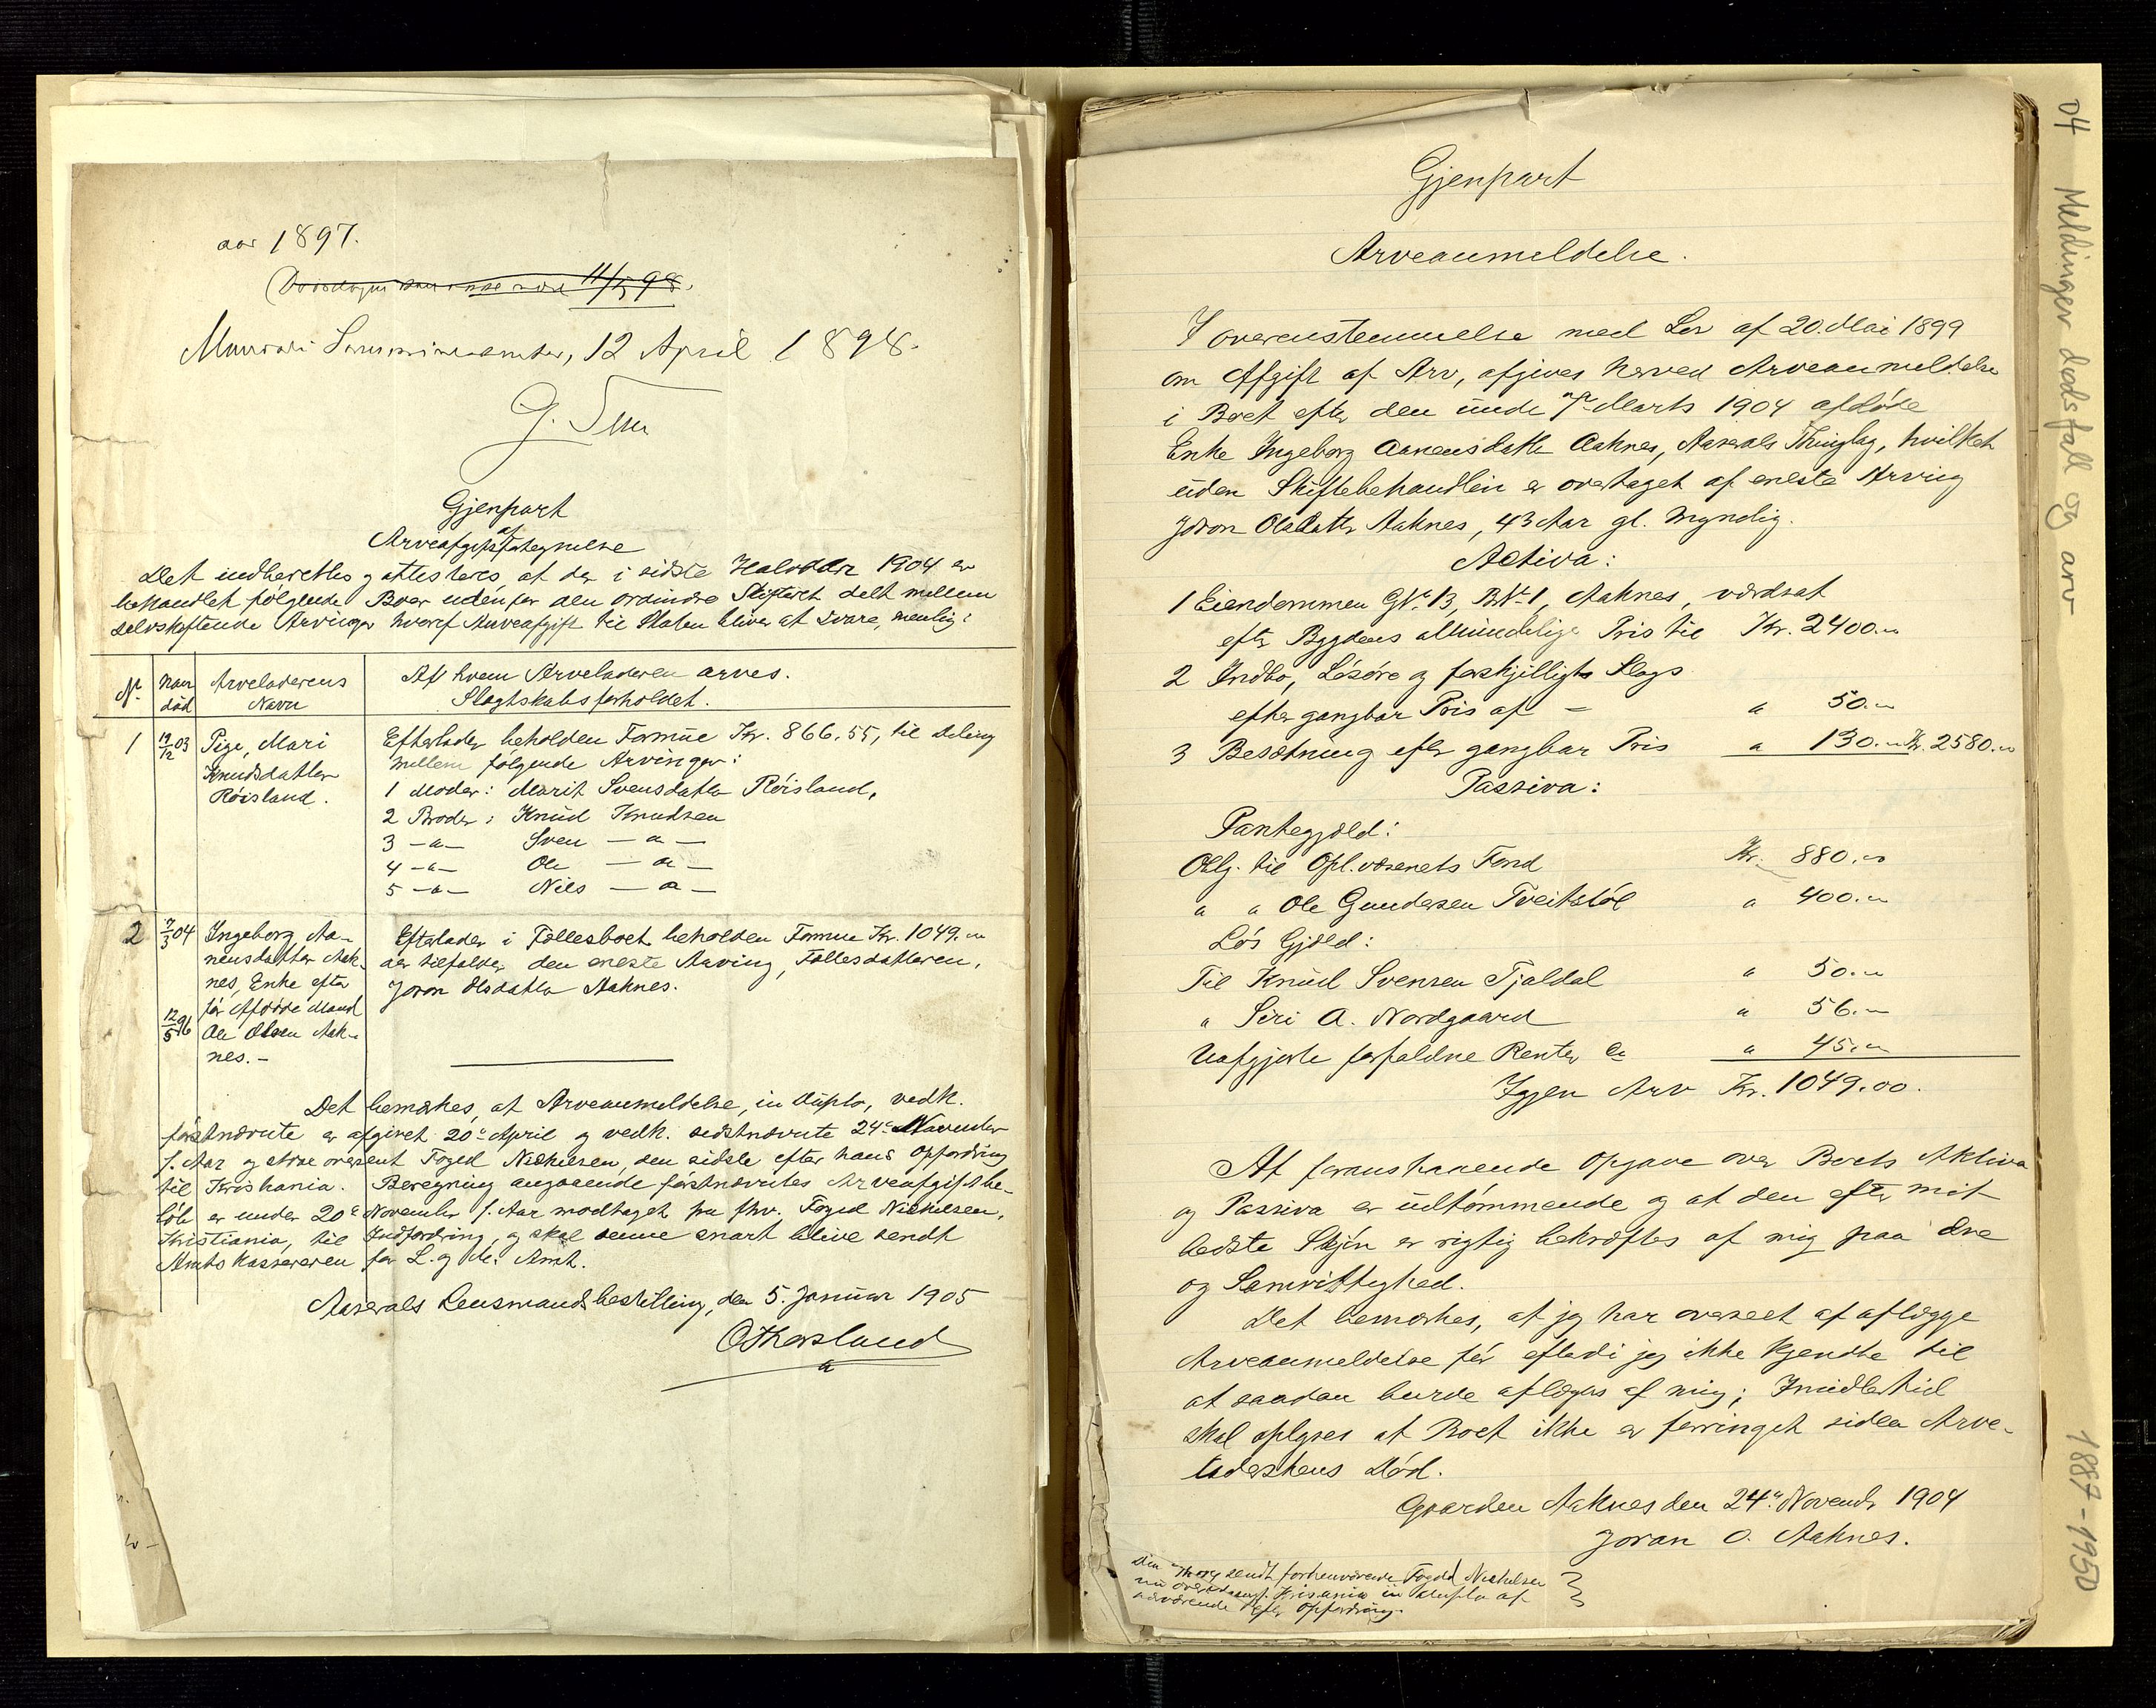 aar 1897.
11/5 98.
12 April 1898.
G.
Gjenpart
af
Arveafgiftsfortegnelse
Det indberettes og attesteres, at der i sidste Halvaar 1904 er
behandlet følgende Boer udenfor den ordinære Skifteret delt mellem
selvskiftende Arvinger hvoraf Arveafgift til Staten bliver at svare, nemlig:
No.
Naar død
Arveladerens Navn
Af hvem Arveladeren arves.
Slægtskabsforholdet.
1
19/12 03
Pige, Mari
Knudsdatter
Røisland.
Efterlader beholden Formue Kr. 866.55, til Deling
mellem følgende Arvinger:
1 Moder: Marit Svensdatter Røisland,
2 Broder: Knud Knudsen
3 -"- Sven -"-
4 -"- Ole -"-
5 -"- Niels -"-
2
7/3 04
Ingeborg Aa-
nensdatter Aak-
nes, Enke efter
før Afdøde Mand
12/5 96
Ole Olsen Aak-
nes. -
Efterlader i Fællesboet beholden Formue Kr. 1049.00
der tilfalder den eneste Arving, Fællesdatteren,
Joron Olsdatter Aaknes.
Det bemærkes, at Arveanmeldelse, in duplo, vedk.
førstnævnte er afgivet 20de April og vedk. sidstnævnte 24de November
f. Aar og oversendt Foged Nickelsen, den sidste efter hans Opfordring
til Kristiania. Beregning angaaende førstnævntes Arveafgiftsbe-
løb er under 20de November f. Aar modtaget fra fhv. Foged Nickelsen,
Kristiania, til Indfordring, og skal denne snart blive sendt
Amtskassereren for L. og M. Amt.
Aaserals Lensmandsbestilling, den 5. Januar 1905
O Kosland
Gjenpart
Arveanmeldelse.
I overenstemmelse med Lov af 20. Mai 1899
om Afgift af Arv, afgives herved Arveanmeldelse
i Boet efter den unde 7de Marts 1904 afdøde
Enke Ingeborg Aanensdatter Aaknes, Aaserals Thinglag, hvilket
uden Skiftebehandlin er overtaget af eneste Arving
Joron Olsdatter Aaknes, 43 Aar gl. Myndig.
Activa:
1 Eiendommen GNr. 13, BNr. 1, Aaknes, værdsat
efter Bygdens almindelige Pris til Kr. 2400.00
2 Indbo, Løsøre og forskjelligts Slags
efter gangbar Pris af - " 50.00
3 Besætning efter gangbar Pris " 130.00 Kr. 2580.00
Passiva:
Pantegjæld:
Oblg. til Opl.væsenets Fond Kr. 880.00
" " Ole Gundersen Tveitstøl " 400.00
Løs Gjæld:
Til Knud Svensen Tjaldal " 50.00
" Siri A. Nordgaard " 56.00
Uafgjorte forfaldne Renter ca " 45.00
Igjen Arv Kr. 1049.00.
At foranstaaende Opgave over Boets Aktiva
og Passiva er udtømmende og at den efter mit
bedste Skjøn er rigtig bekræftes af mig paa ære
og Samvittighed.
Det bemærkes, at jeg har overseet at aflægge
Arveanmeldelse før efterdi jeg ikke kjendte til
at saadan burde aflægges af mig; Imidlertid
skal oplyses at Boet ikke er forringet siden Arve-
laderskens Død.
Gaarden Aaknes den 24de Novembr 1904
Joran O. Aaknes.
sendt forhenværende Foged Nickelsen
Kristiania in duplo af
efter Opfordring.
04 Meldinger dødsfall og arv
1887-1950